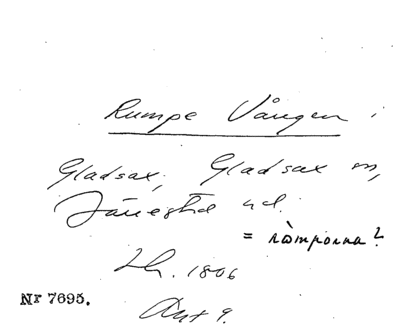 Rumpe Vången i
Gladsax, Gladsax sn,
Järrestad hd.
= ròmporna?
Lh. 1806
Akt 9.
Nr 7695.